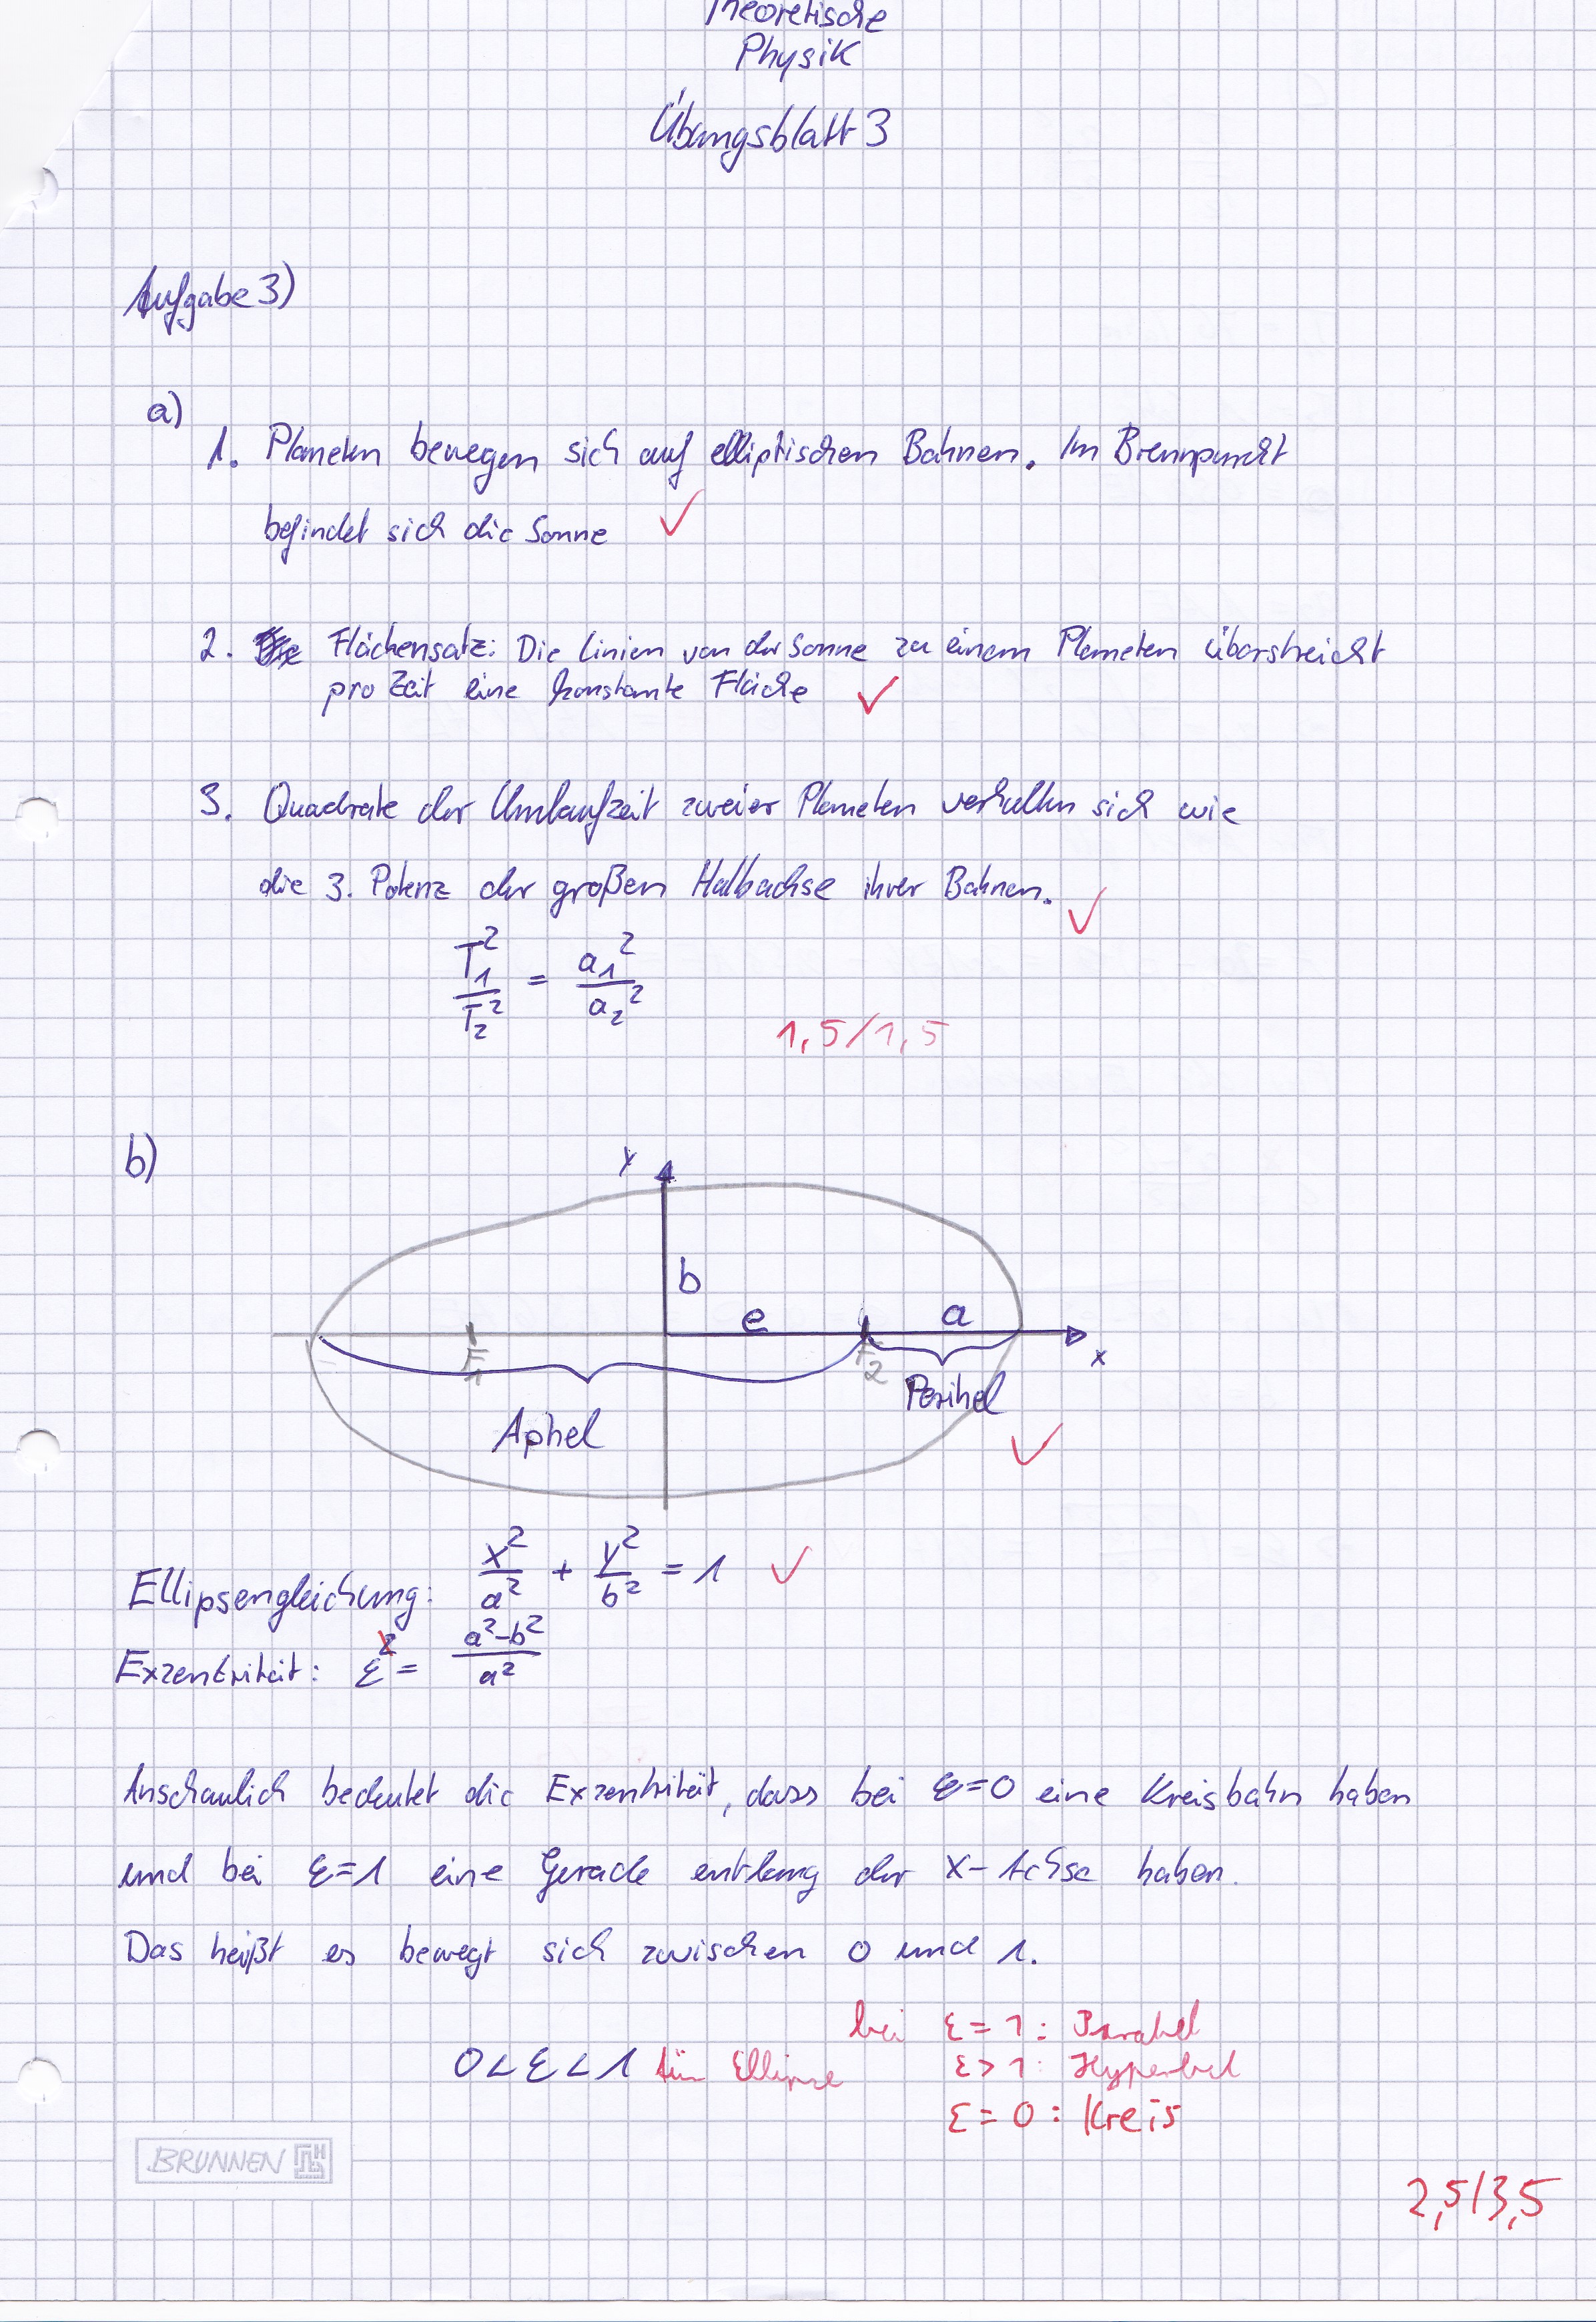 Theoretische
Physik
Übungsblatt 3
Aufgabe 3)
a)
1. Planeten bewegen sich auf elliptischen Bahnen. Im Brennpunkt
befindet sich die Sonne ✓
2. Flächensatz: Die Linien von der Sonne zu einem Planeten überstreicht
pro Zeit eine konstante Fläche ✓
3. Quadrate der Umlaufzeit zweier Planeten verhalten sich wie
die 3. Potenz der großen Halbachse ihrer Bahnen. ✓
T₁²/T₂² = a₁²/a₂²
1,5/1,5
b)
y
b
e a
x
F₁ F₂
Perihel
Aphel ✓
Ellipsengleichung: x²/a² + y²/b² = 1 ✓
Exzentrität: ε² = a²-b²/a²
Anschaulich bedeutet die Exzentrität, dass bei ε=0 eine Kreisbahn haben
und bei ε=1 eine Gerade entlang der x-Achse haben.
Das heißt es bewegt sich zwischen 0 und 1.
bei ε = 1 : Parabel
0 < ε < 1 für Ellipse ε > 1 : Hyperbel
ε = 0 : Kreis
BRUNNEN
2,5/3,5